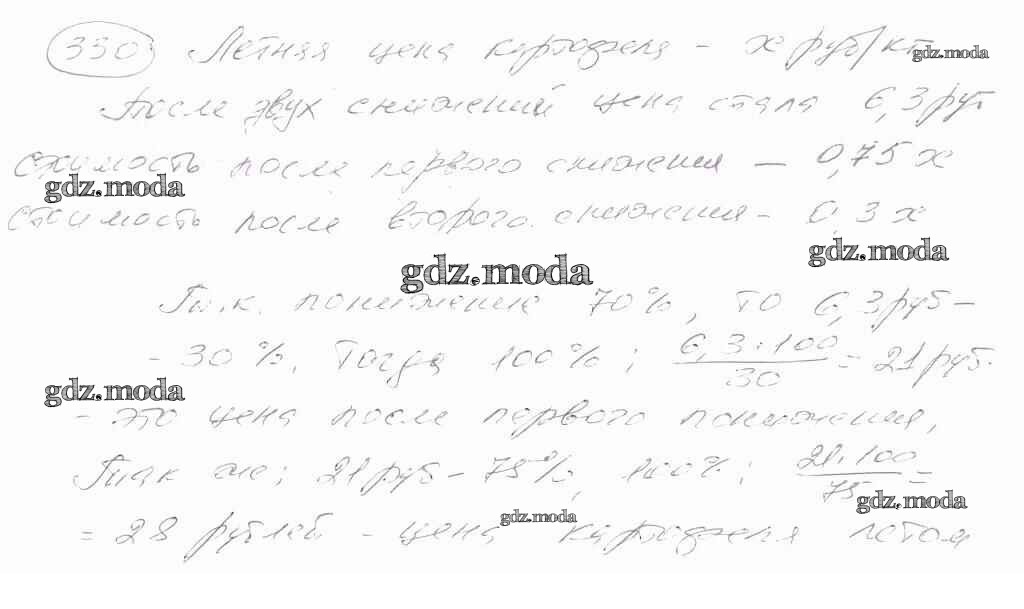 330 Летная цена картофеля - х руб/кг gdz.moda
После двух снижений цена стала 6,3 руб
стоимость после первого снижения - 0,75 х
gdz.moda
стоимость после второго снижения - 0,3 х
gdz.moda
gdz.moda
Т.к. понижение 70%, то 6,3 руб -
- 30%. Тогда 100%: 6,3·100/30 = 21 руб.
gdz.moda
- это цена после первого понижения,
Так же: 21 руб - 75%, 100%: 21·100/75 =
gdz.moda
gdz.moda
= 28 рублей - цена картофеля летом